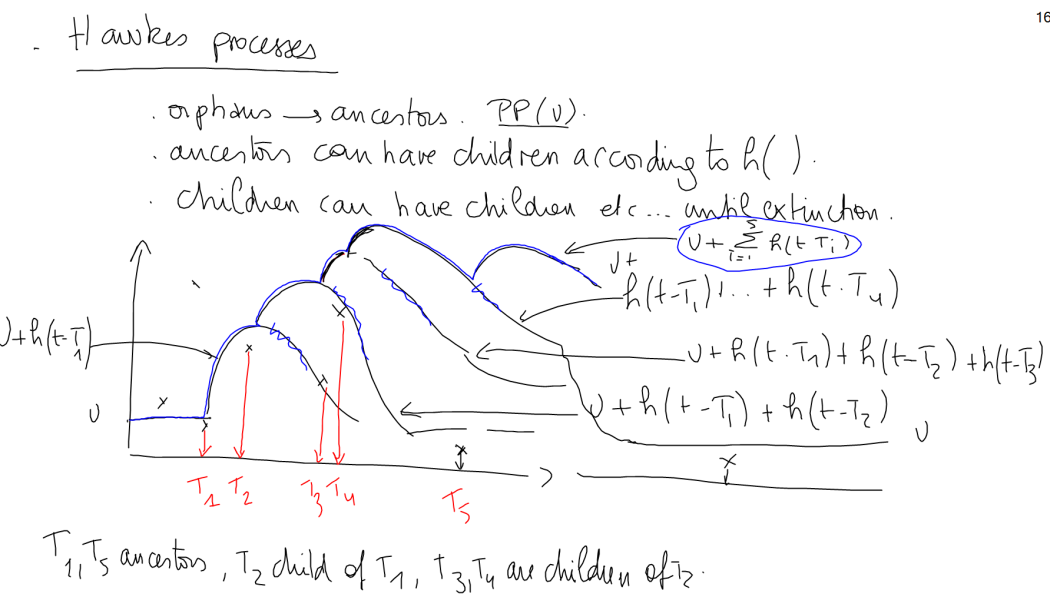 16
- Hawkes processes
. orphans → ancestors. PP(ν).
. ancestors can have children according to h( ).
. children can have children etc... until extinction.
ν + ∑_{i=1}^{5} h(t-T_i)
ν + h(t-T_1) + ... + h(t-T_4)
ν + h(t-T_1)
ν + h(t-T_1) + h(t-T_2) + h(t-T_3)
ν + h(t-T_1) + h(t-T_2)
ν
ν
T_1 T_2 T_3 T_4 T_5
T_1, T_5 ancestors, T_2 child of T_1, T_3, T_4 are children of T_2.